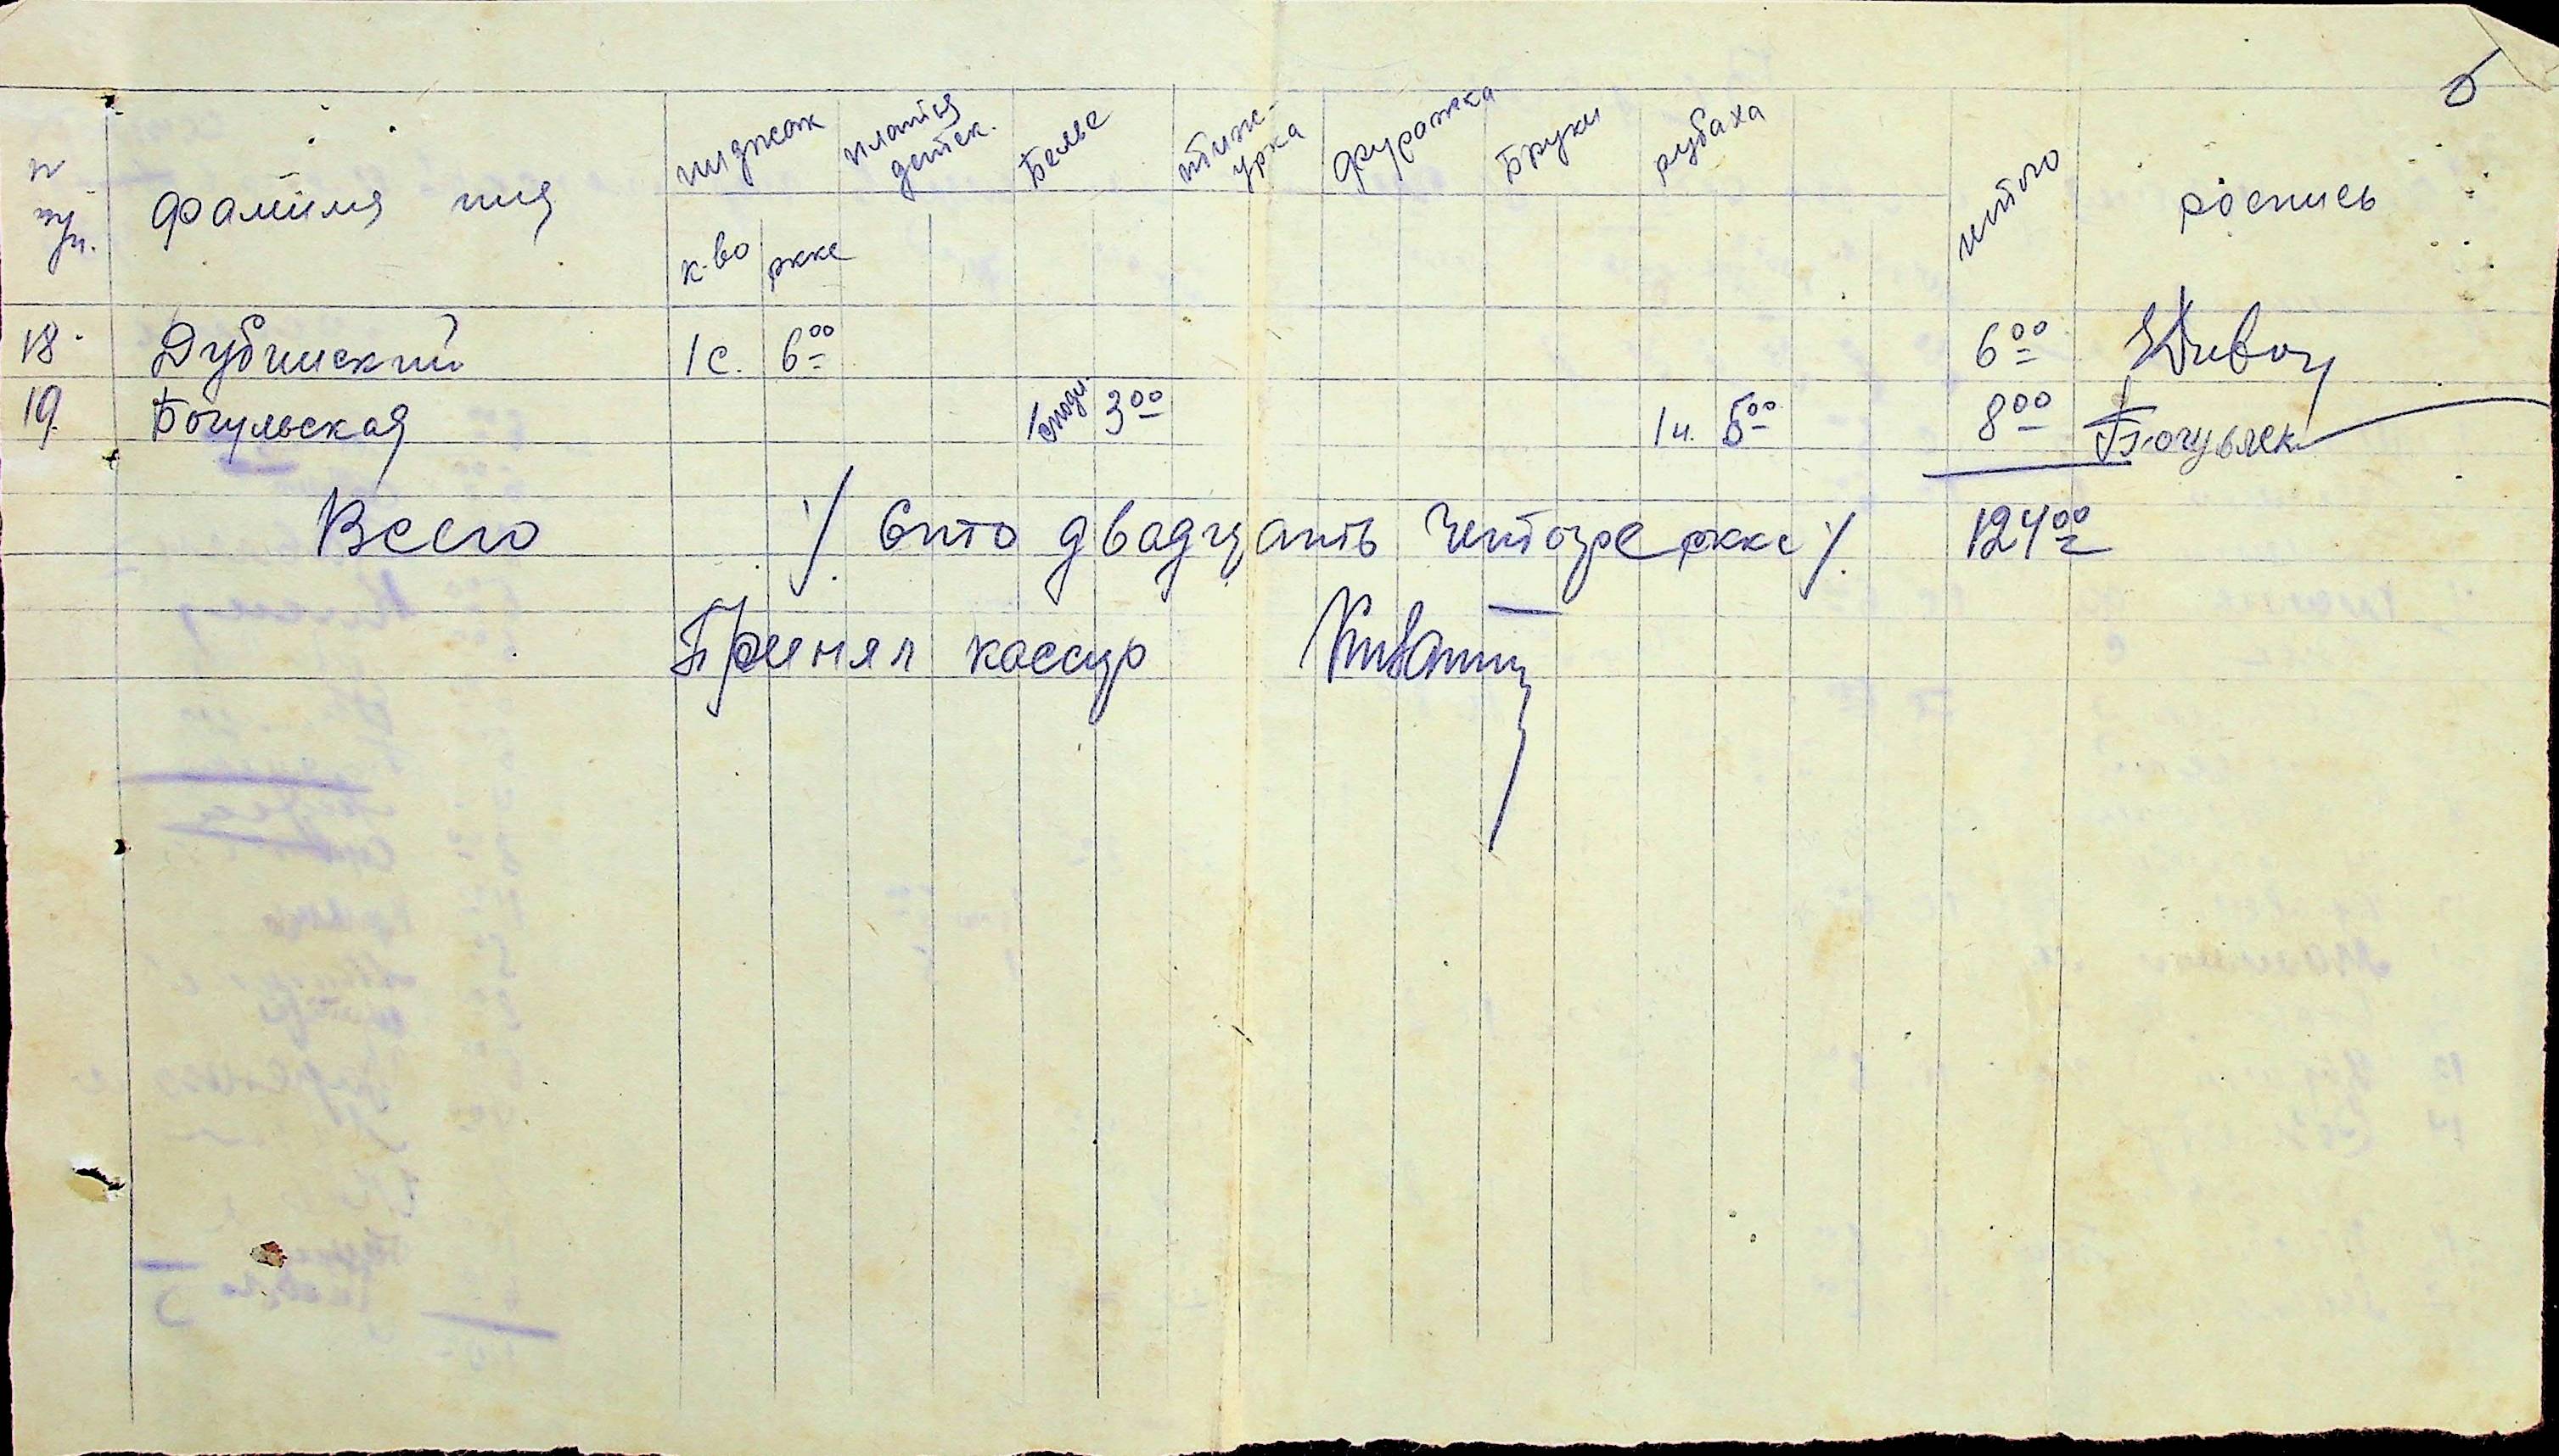 б
N
п/п. фамилия имя пиджак платья детск. Белье тужурка фуражка Бруки рубаха итого роспись
к-во ркке
18. Дубинский 1с. 6⁰⁰ 6⁰⁰
19. Богульская 1 3⁰⁰ 1ч. 5⁰⁰ 8⁰⁰ Богульск
Всего /. Сто двадцать Четыре ркке ./ 124⁰⁰
Принял кассир